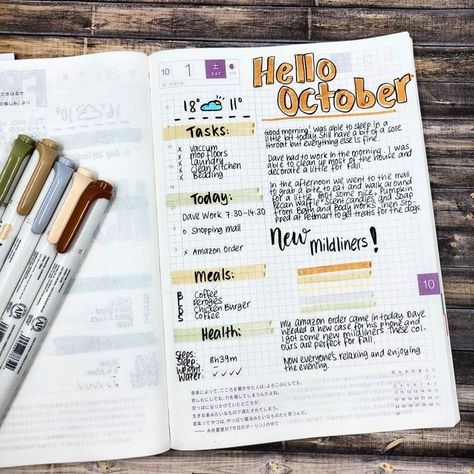 10
1
土
SAT
Hello
October
18°
11°
Tasks:
x Vaccum
x mop floors
x laundry
x clean kitchen
x Bedding
Today:
Dave Work 7:30-14:30
o Shopping mall
x Amazon Order
Meals:
B Coffee
B perogies
S Chicken Burger
S Coffee
Health:
Steps:
Sleep: 8h39m
Weight:
Water:
Good morning! was able to sleep in a
little bit today. Still have a bit of a sore
throat but everything else is fine.
Dave had to work in the morning. I was
able to clean up most of the house and
decorate a little for Fall.
In the afternoon we went to the mall
to grab a bite to eat and walk around
for a little. Got some nice Pumpkin
Pecan Waffle Scent candles and Soap
from Bath and Body works. Then Stop-
ped at Petsmart to get treats for the dogs
New Mildliners!
10
My amazon order came in today. Dave
needed a new case for his phone and
I got some new mildliners. These col-
ours are perfect for fall.
Now everyone's relaxing and enjoying
the evening.
音楽によって、こころを動かせた人は、よろこびにしても、
悲しむにしても、力を信じてしまうんだよね。
空っぽになりかけていたところが、
生きる楽みたいなもので満たされてしまう。
音楽ってやつは、やっぱり魔法みたいなものだと思うんだ。